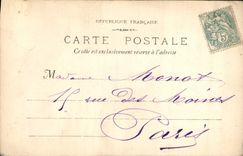 RÉPUBLIQUE FRANÇAISE
CARTE POSTALE
Ce côté est exclusivement réservé à l'adresse
Madame Monot
15 rue des Moines
Paris